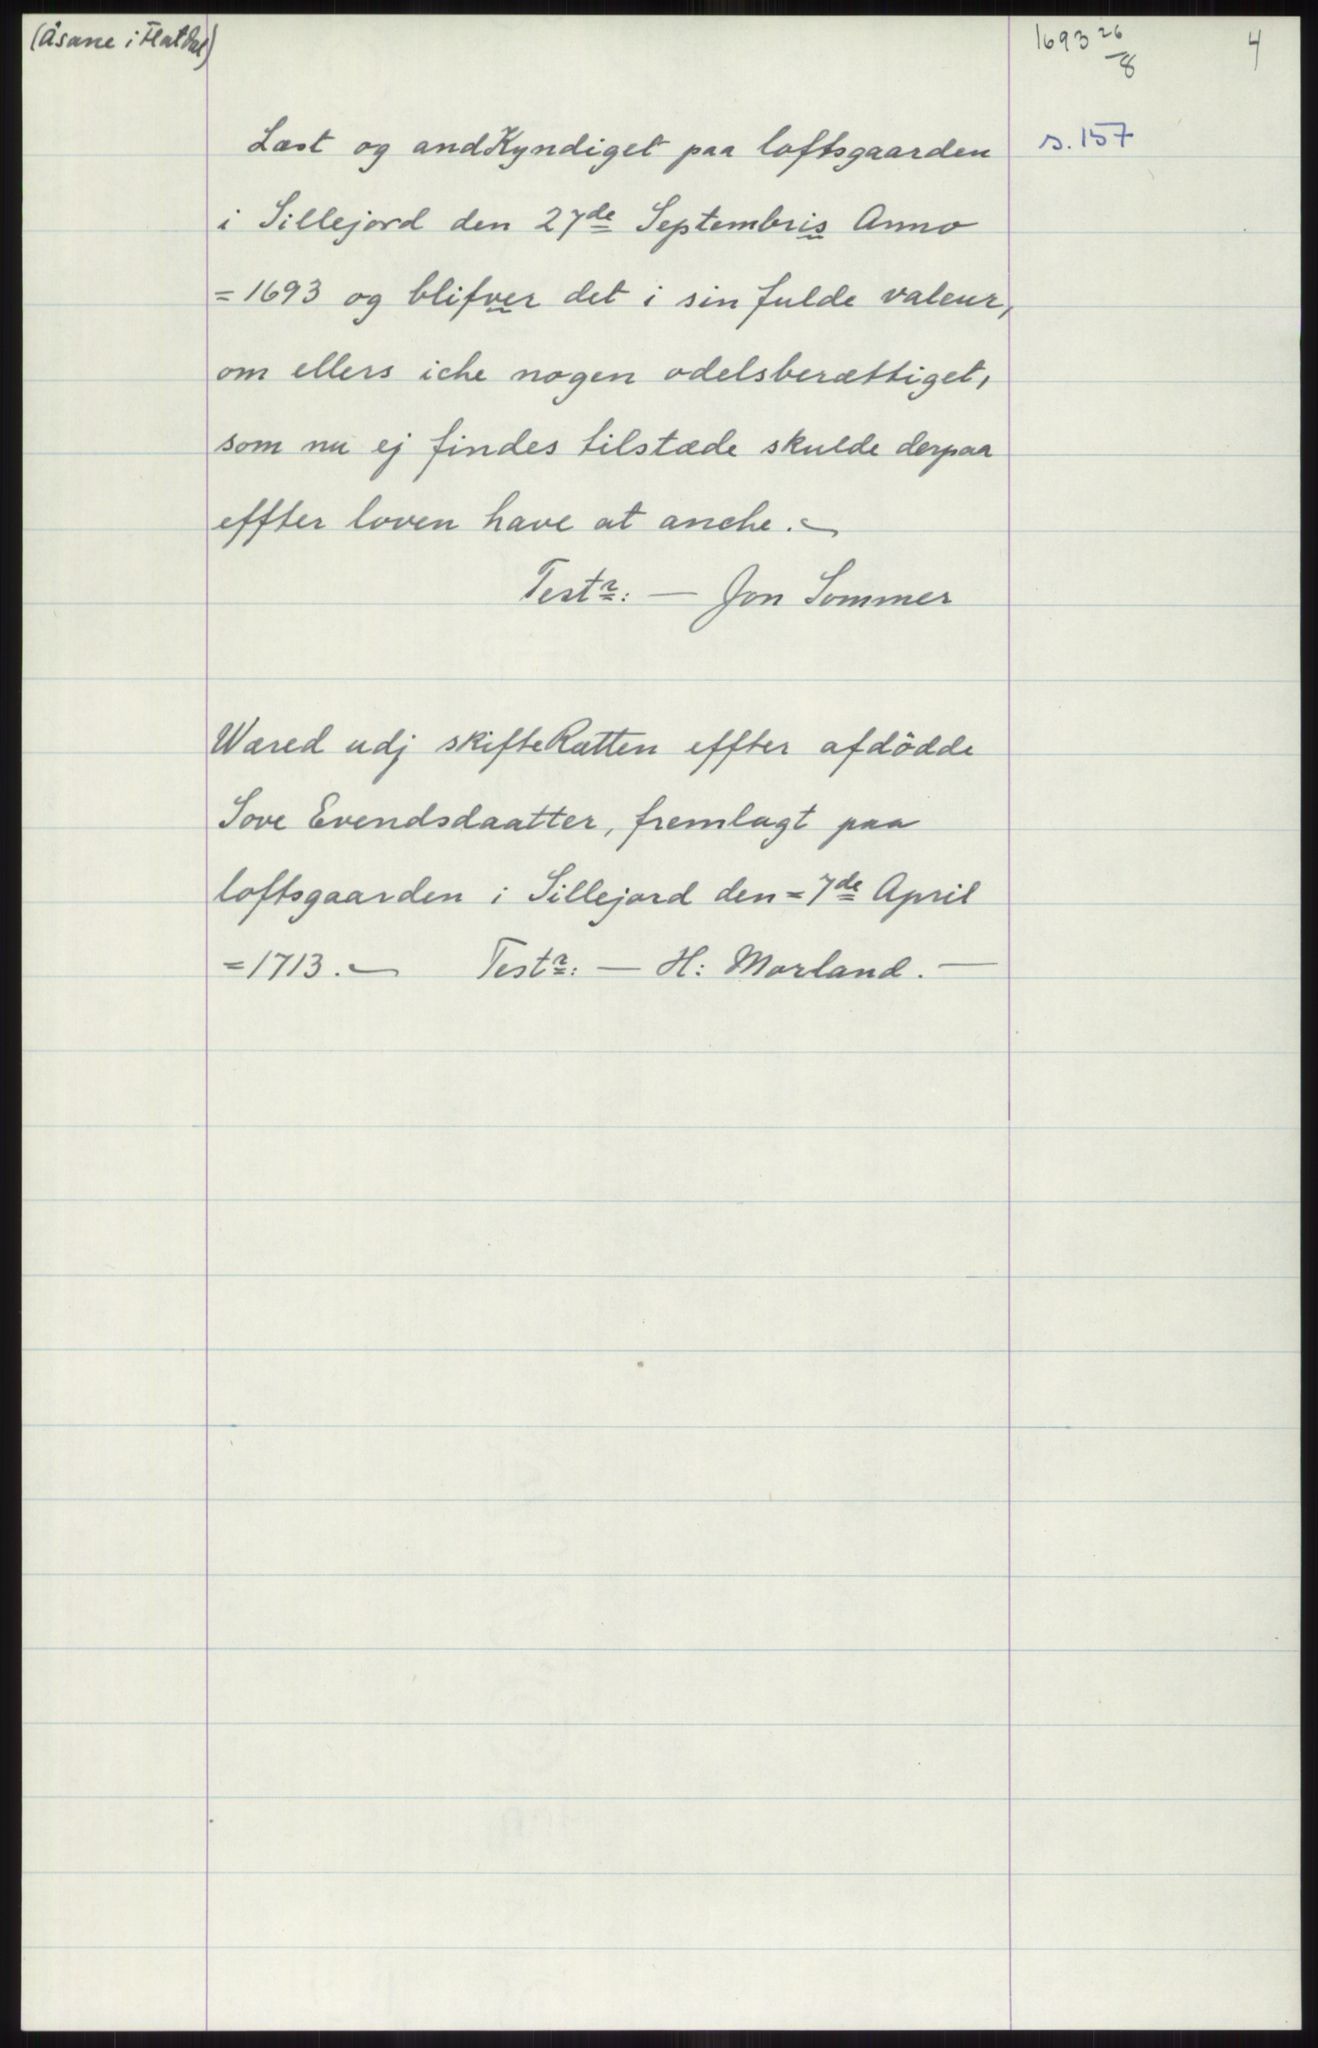 (Åsane i Flatdal)
1693 26/8
4
s. 157
Læst og andKyndiget paa loftsgaarden
i Sillejord den 27de Septembris Anno
= 1693 og blifver det i sin fulde valeur,
om ellers iche nogen odelsberættiget,
som nu ej findes tilstæde skulde derpaa
effter loven have at anche. ~
Testr: — Jon Sommer
Wæred udj skifteRætten effter afdödde
Sove Evendsdaatter, fremlagt paa
loftsgaarden i Sillejord den = 7de April
= 1713. ~ Testr: — H: Morland. —